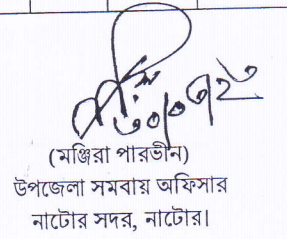 (মঞ্জিরা পারভীন)
উপজেলা সমবায় অফিসার
নাটোর সদর, নাটোর।